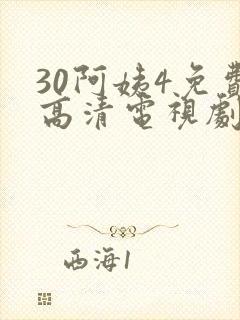 30阿姨4免費
高清電視劇
西海1